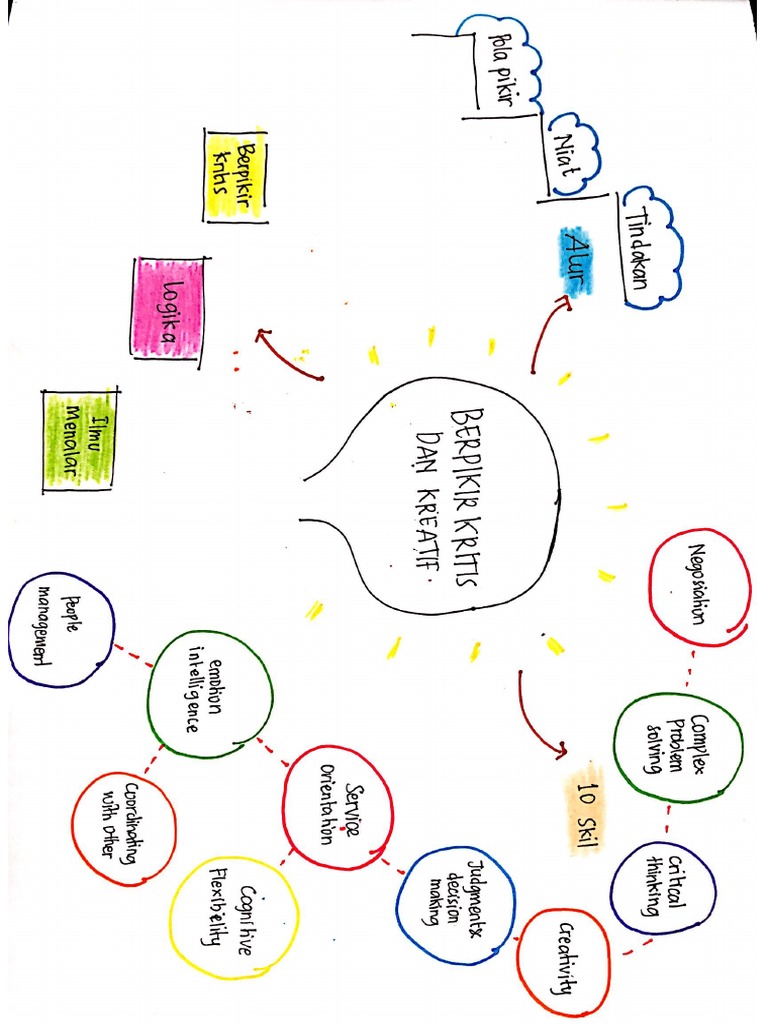 Pola pikir
Niat
Tindakan
Alur
Berpikir
kritis
Logika
Ilmu
Menalar
BERPIKIR KRITIS
DAN KREATIF.
10 Skil
Negosiation
Complex
Problem
solving
Critical
thinking
Creativity
Judgment&
decision
making
Service
orientation
Cognitive
Flexibielity
emotion
intelligence
Coordinating
with other
People
management